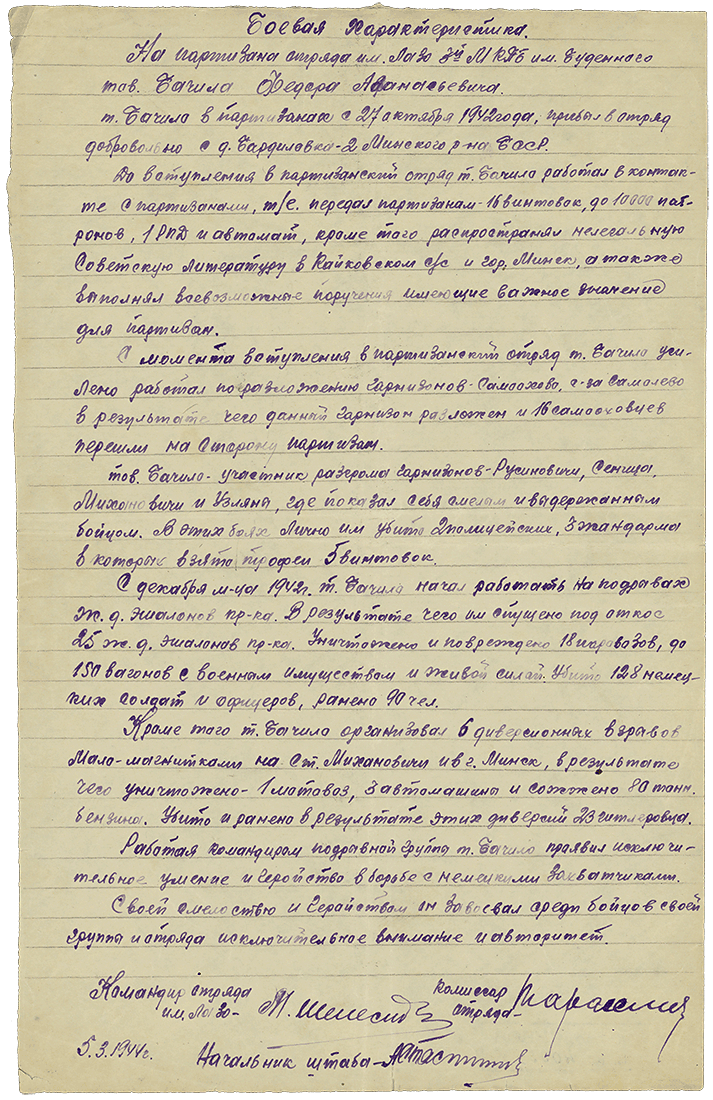 Боевая Характеристика.
На партизана отряда им. Лазо 3й МКПБ им. Буденнаго
тов. Бачила Федора Афанасьевича.
т. Бачила в партизанах с 27 октября 1942 года, прибыл в отряд
добровольно с д. Бардиловка-2 Минского р-на БССР.
До вступления в партизанский отряд т. Бачило работал в контак-
те с партизанами, т/е. передал партизанам-16 винтовок, до 10000 пат-
ронов, 1 РПД и автомат, кроме того распространял нелегальную
Советскую литературу в Кайковском с/с и гор. Минск, а также
выполнял всевозможные поручения имеющие важное значение
для партизан.
С момента вступления в партизанский отряд т. Бачила уси-
лено работал по разложению гарнизонов-Самоохово, с-за Самолево
в результате чего данный гарнизон разложен и 16 самооховцев
перешли на Сторону партизан.
тов. Бачило-участник разгрома гарнизонов-Русиновичи, Сеница,
Михановичи и Узляна, где показал себя смелым и выдержанным
бойцом. В этих боях Лично им убито 2 полицейских, 3 жандарма
в которых взято трофеи 5 винтовок.
С декабря м-ца 1942г. т. Бачила начал работать на подрывах
ж.д. эшалонов пр-ка. В результате чего им спущено под откос
25 ж.д. эшалонав пр-ка. Уничтожено и повреждено 18 паравазов, до
150 вагонов с военным имуществом и живой силай. Убито 128 немец-
ких солдат и офицеров, ранено 90 чел.
Кроме того т. Бачила организовал 6 диверсионных взравов
Мало-магнитками на Ст. Михановичи и в г. Минск, в результате
чего уничтожено-1 мотовоз, 3 автомашины и сожжено 80 танн.
бензина. Убито и ранено в результате этих диверсий 23 гитлеровца.
Работая командиром подравной группы т. Бачило праявил исключи-
тельное умение и геройство в борьбе с немецкими захватчиками.
Своей смелостью и Герайством он завоевал среди бойцов своей
группы и отряда исключительное внимание и авторитет.
Командир отряда
им. Лазо-
комиссар
отряда-
5.3.1944г. Начальник штаба-